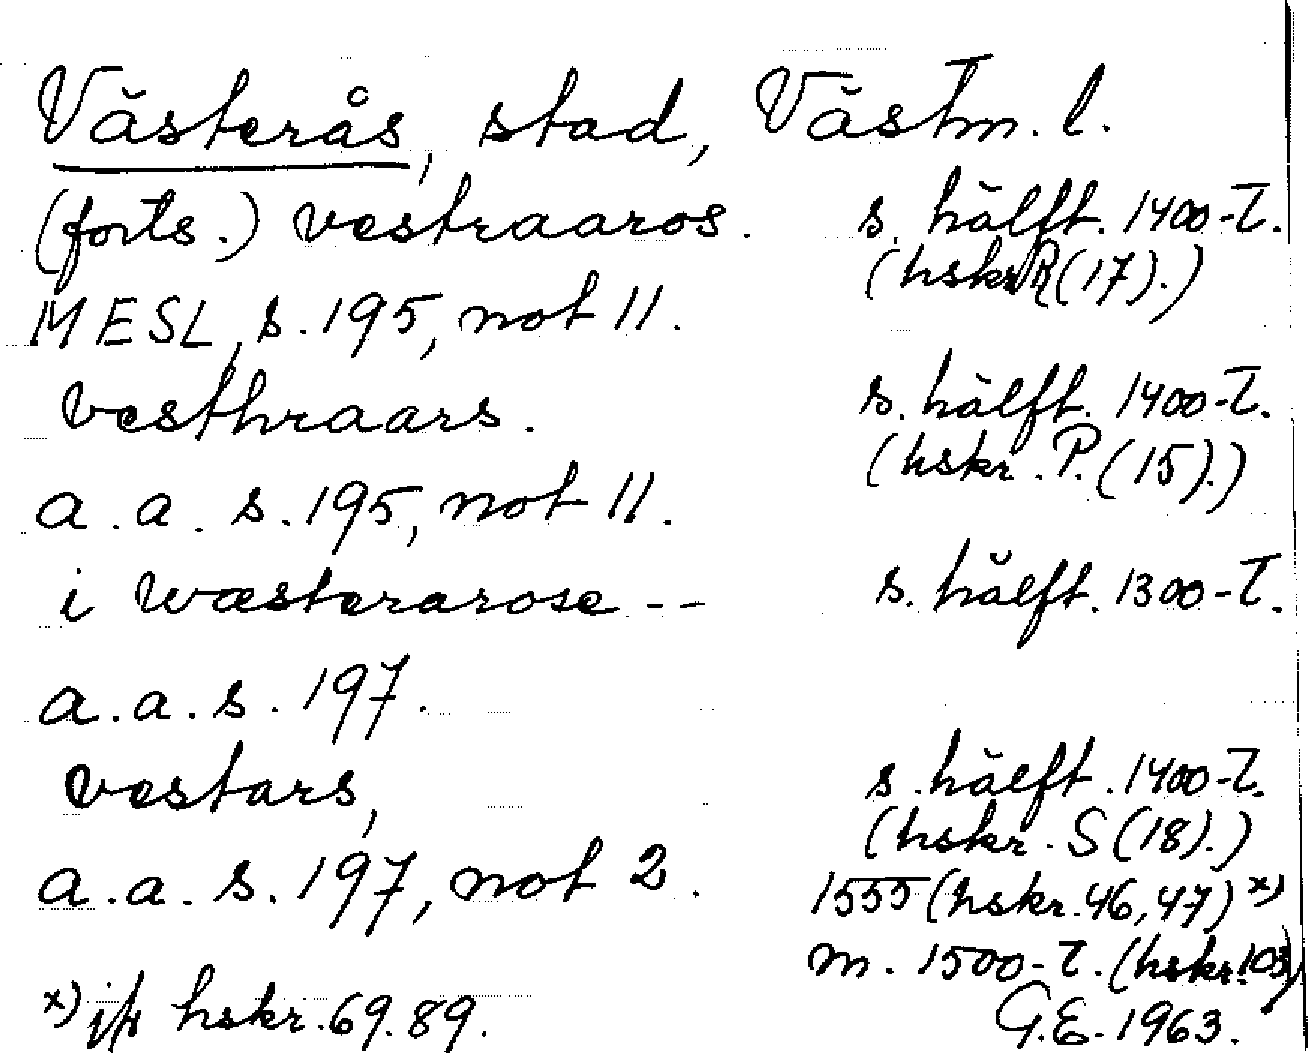 Västerås, stad, Västm. l.
(forts.) vestraaros. s. hälft. 1400-t.
(hskr. R (17).)
MESL, s. 195, not 11.
vesthraars. s. hälft. 1400-t.
(hskr. P. (15).)
a. a. s. 195, not 11.
i wæsterarose -- s. hälft. 1300-t.
a. a. s. 197.
vestars, s. hälft. 1400-t.
(hskr. S (18).)
a. a. s. 197, not 2. 1555 (hskr. 46, 47) x)
m. 1500-t. (hskr. 103)
x) jfr hskr. 69. 89. G.E. 1963.